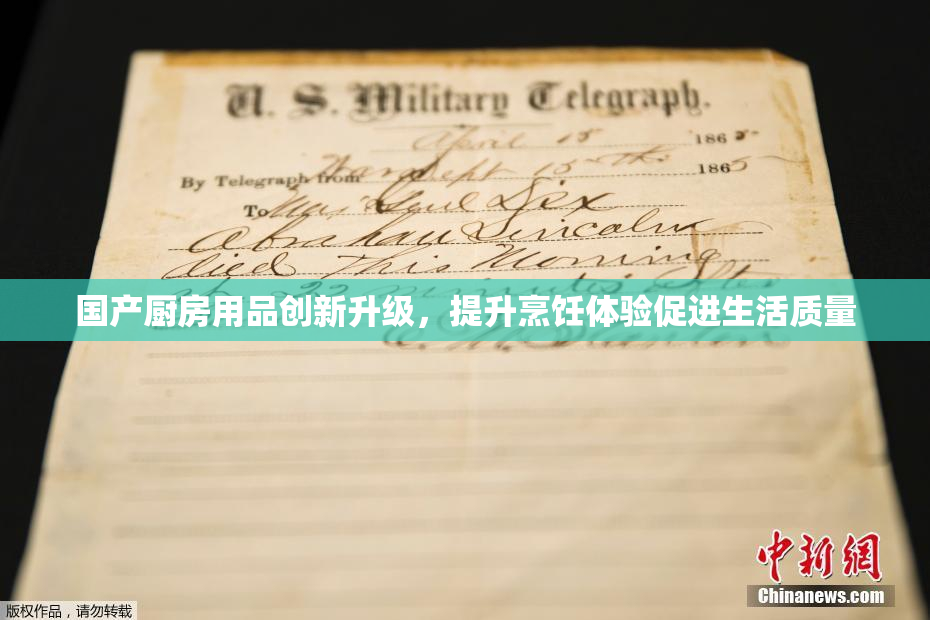 U. S. Military Telegraph.
April 15 1865
By Telegraph from War Dept 15th 1865
To Maj Genl Dix
Abraham Lincoln
died This Morning
22 minutes after
国产厨房用品创新升级，提升烹饪体验促进生活质量
E. M. Stanton
中新网
Chinanews.com
版权作品，请勿转载